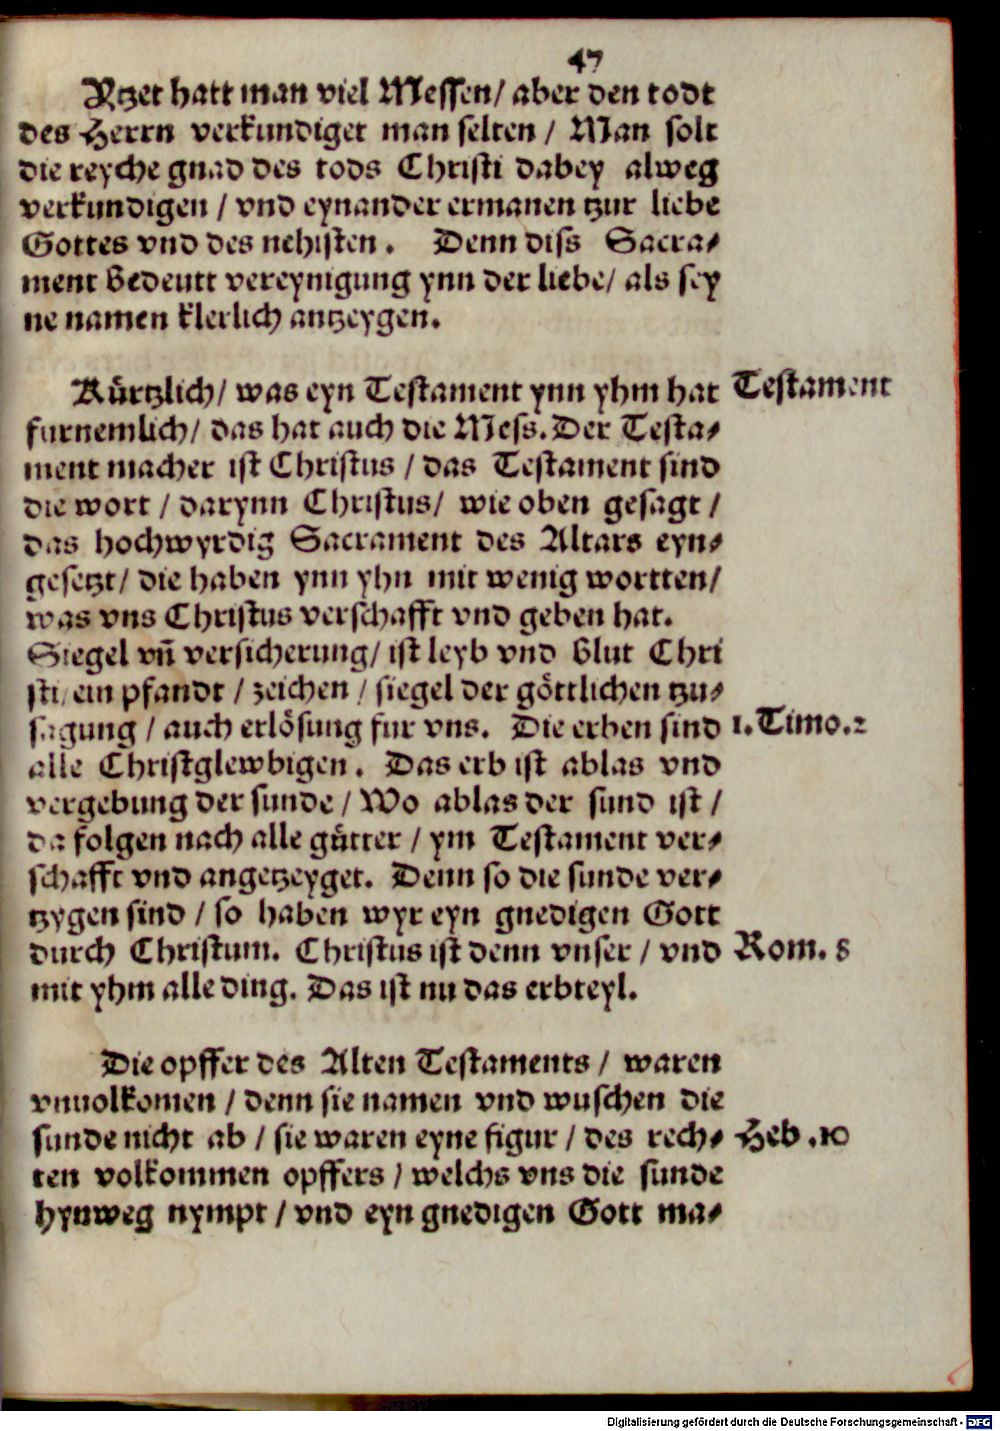 47
Itzet hatt man viel Messen/ aber den todt
des Herrn verkundiget man selten / Man solt
die reyche gnad des tods Christi dabey alweg
verkundigen / vnd eynander ermanen tzur liebe
Gottes vnd des nehisten. Denn diss Sacra⸗
ment bedeutt vereynigung ynn der liebe/ als sey
ne namen klerlich antzeygen.
Kůrtzlich/ was eyn Testament ynn yhm hat Testament
furnemlich/ das hat auch die Mess. Der Testa⸗
ment macher ist Christus / das Testament sind
die wort / darynn Christus/ wie oben gesagt /
das hochwyrdig Sacrament des Altars eyn⸗
gesetzt/ die haben ynn yhn mit wenig wortten/
was vns Christus verschafft vnd geben hat.
Siegel vñ versicherung/ ist leyb vnd blut Chri
sti/ ein pfandt / zeichen / siegel der göttlichen tzu⸗
sagung / auch erlösung fur vns. Die erben sind 1. Timo. 2
alle Christglewbigen. Das erb ist ablas vnd
vergebung der sunde / Wo ablas der sund ist /
da folgen nach alle gůtter / ym Testament ver⸗
schafft vnd angetzeyget. Denn so die sunde ver⸗
tzygen sind / so haben wyr eyn gnedigen Gott
durch Christum. Christus ist denn vnser / vnd Rom. 8
mit yhm alle ding. Das ist nu das erbteyl.
Die opffer des Alten Testaments / waren
vnuolkomen / denn sie namen vnd wuschen die
sunde nicht ab / sie waren eyne figur / des rech⸗ Heb. 10
ten volkommen opffers / welchs vns die sunde
hynweg nympt / vnd eyn gnedigen Gott ma⸗
Digitalisierung gefördert durch die Deutsche Forschungsgemeinschaft - DFG